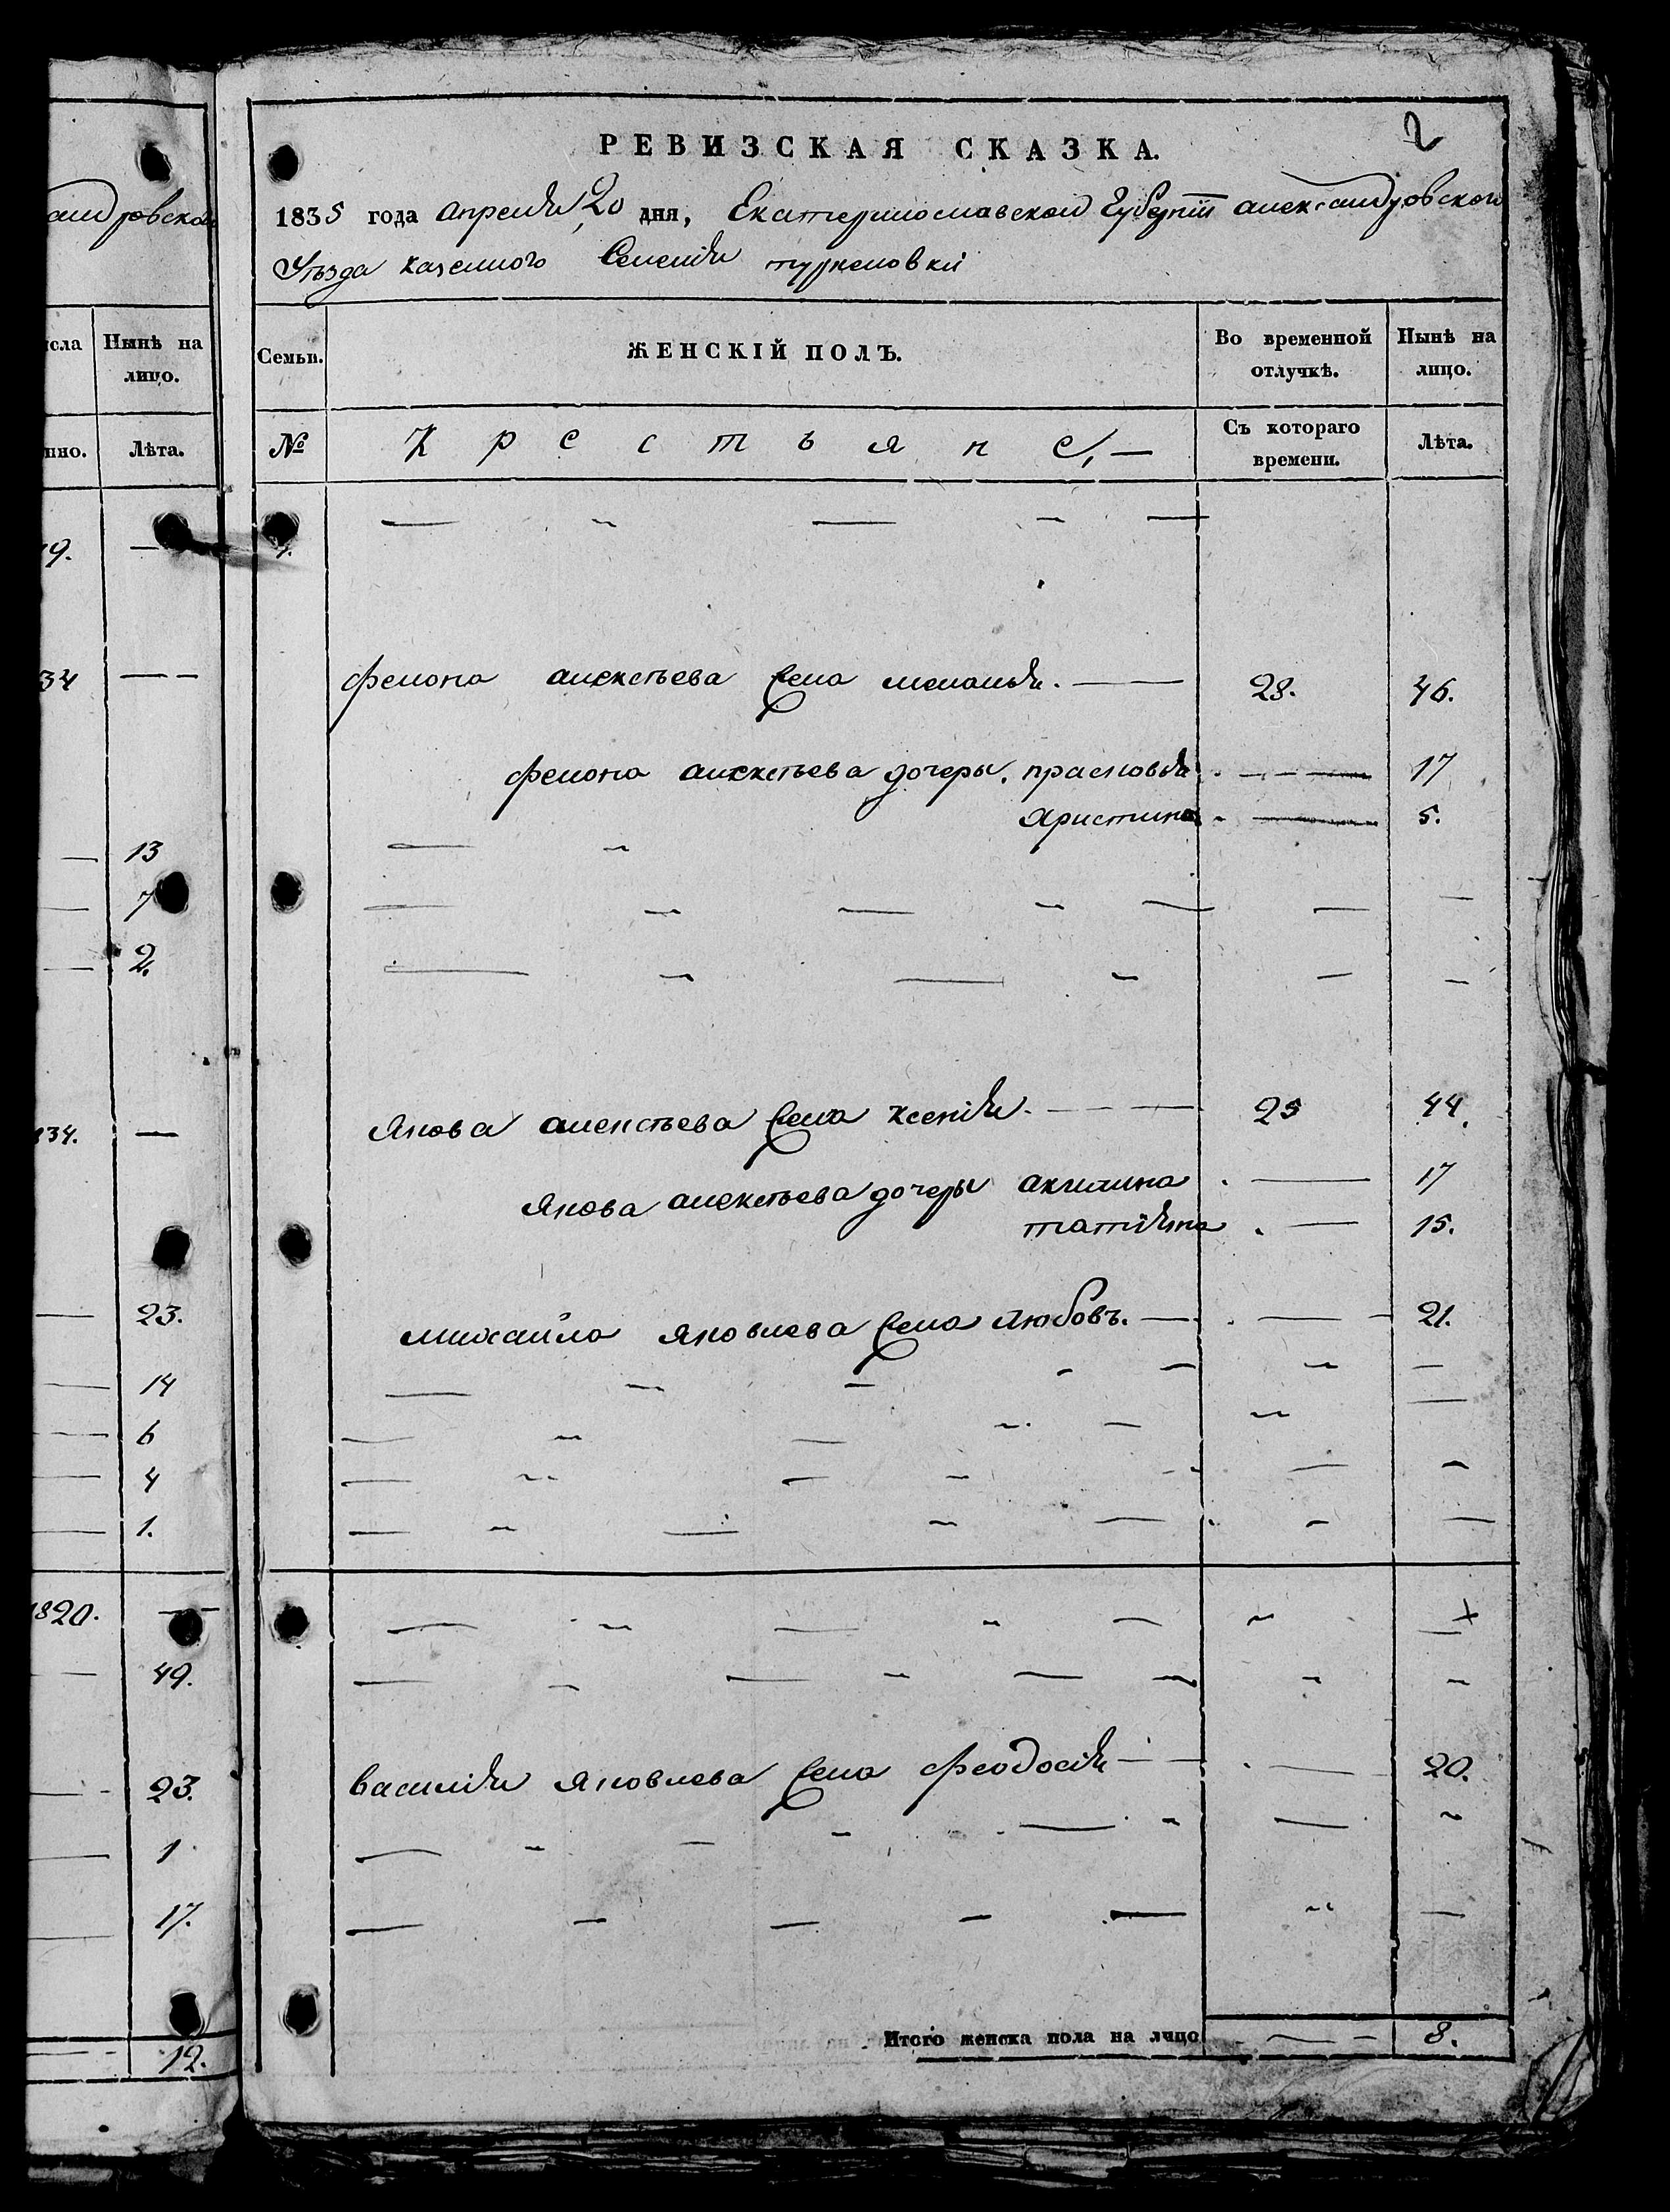 андровской
исла Нынѣ на
лицо.
нно. Лѣта.
19. —
34 — —
— 13
— 7
— 2.
834. —
— 23.
— 14
— 6
— 4
— 1.
1820. — —
— 49.
— 23.
— 1
— 17.
— 12.
2
РЕВИЗСКАЯ СКАЗКА.
1835 года апреля 20 дня, Екатеринославской Губернїи александровскаго
Уѣзда казенного Селенія туркеновки
Семьи. ЖЕНСКІЙ ПОЛЪ. Во временной отлучкѣ. Нынѣ на лицо.
№ Крестьяне, — Съ котораго времени. Лѣта.
алексѣева жена меланья. — 28. 46.
алексѣева дочеры. прасковья — 17
христина — 5.
Якова алексѣева жена ксенія. — 25 44.
Якова алексѣева дочеры акилина — 17
татїяна — 15.
михайла Яковлева жена Любовъ. — 21.
василія Яковлева жена феодосія — 20.
Итого женска пола на лицо — 8.